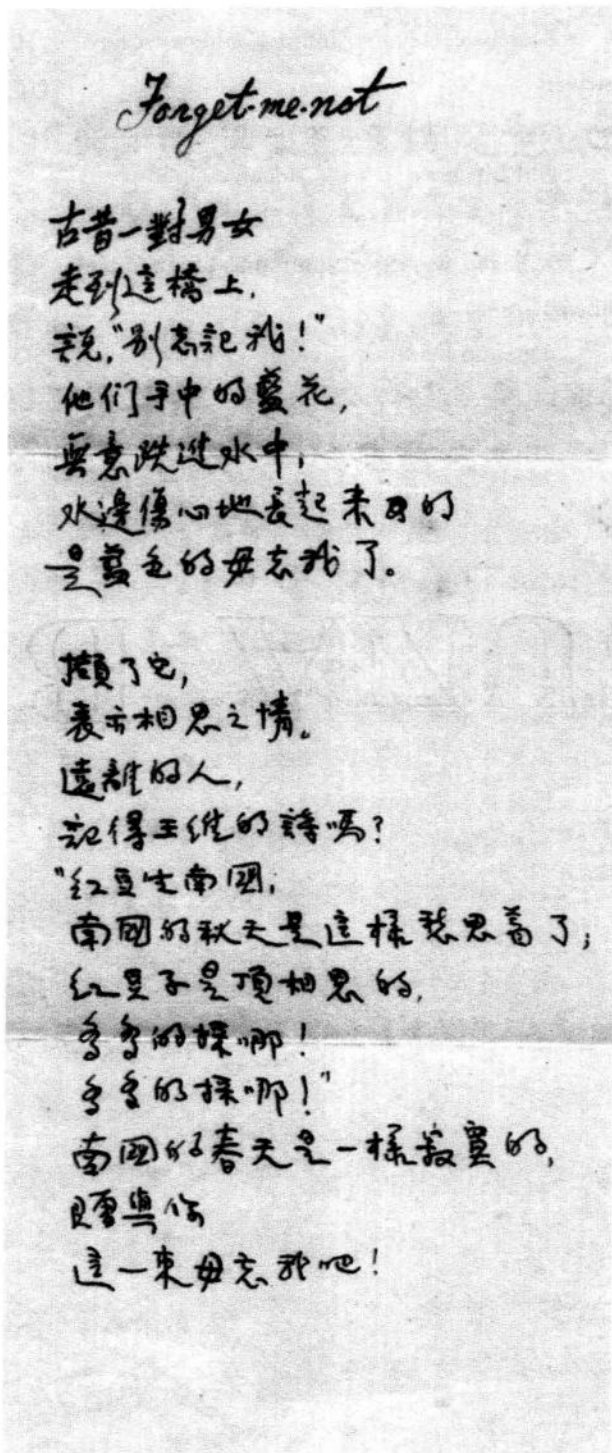 Forget-me-not
古昔一對男女
走到這橋上,
說,"別忘記我!"
他们手中的藍花,
無意跌進水中,
水邊傷心地長起来的
是藍色的毋忘我了。
擷了它,
表示相思之情。
遠離的人,
記得王维的詩嗎?
"紅豆生南國,
南國的秋天是這樣愁思着了;
紅豆子是頂相思的,
多多的採哪!
多多的採哪!"
南國的春天是一樣寂寞的,
贈與你
這一束毋忘我吧!